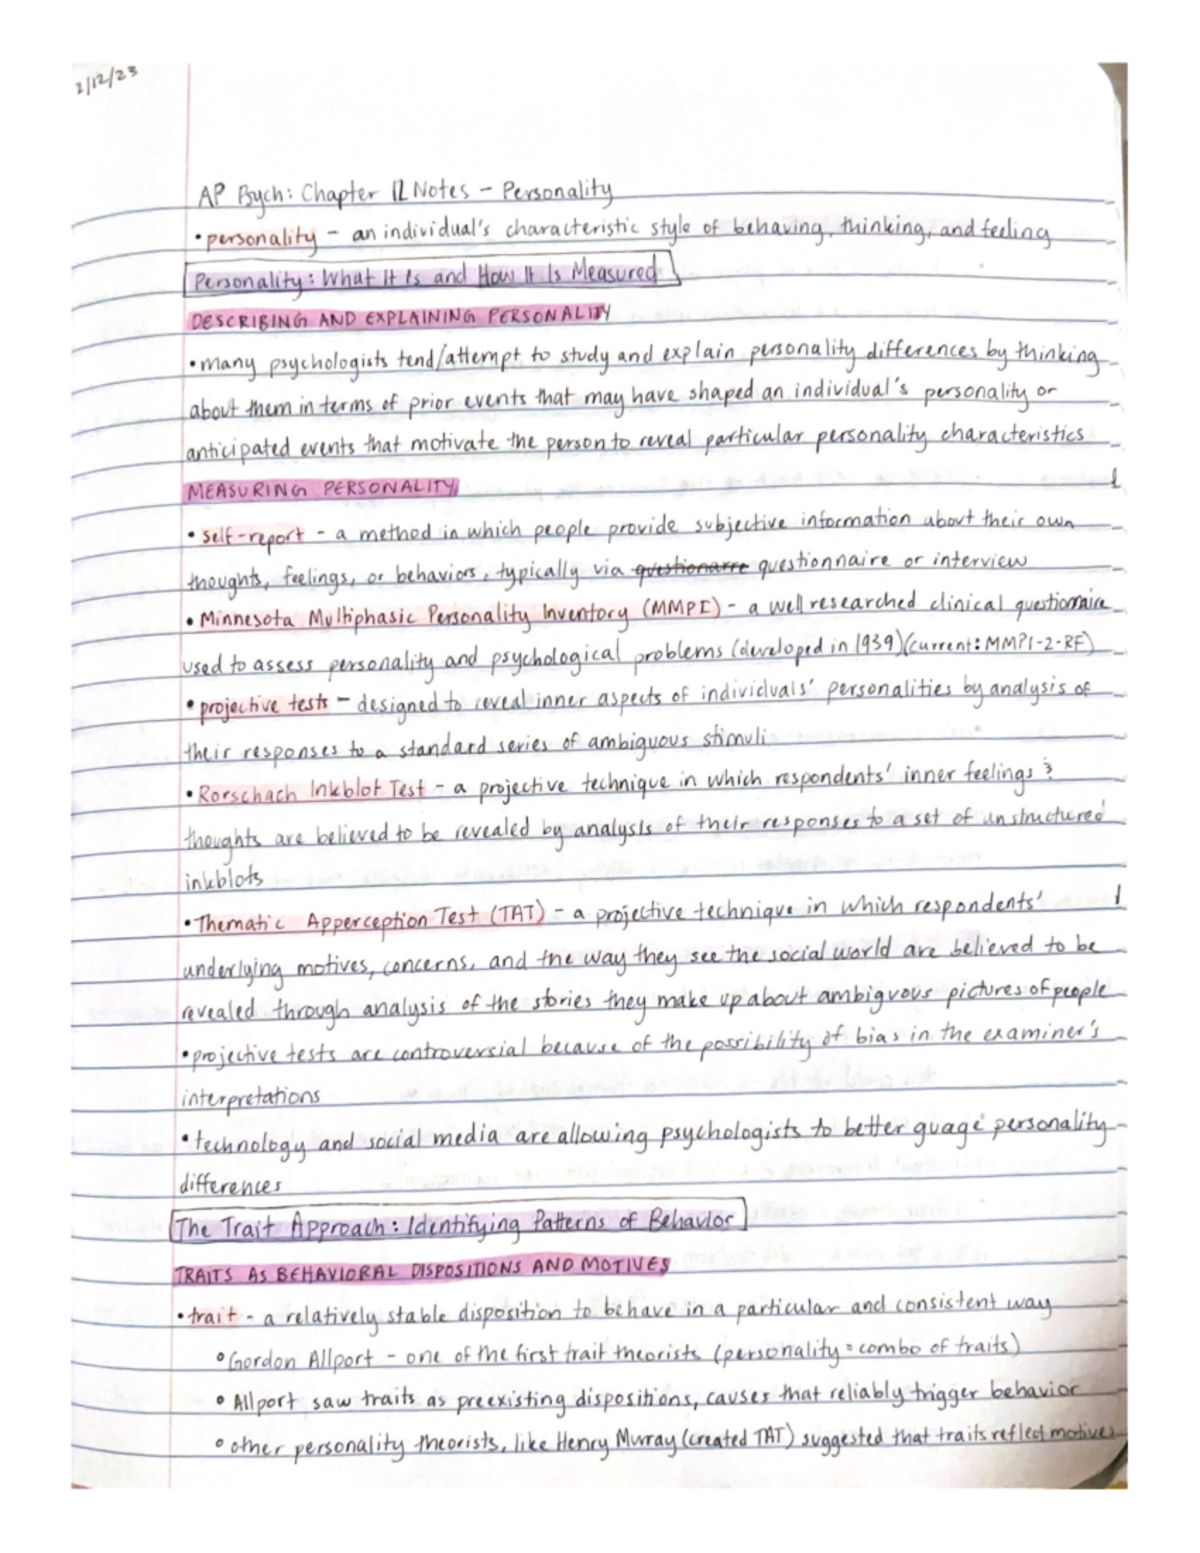 2/12/23
AP Psych: Chapter 12 Notes - Personality
• personality - an individual's characteristic style of behaving, thinking, and feeling
Personality: What It Is and How It Is Measured
DESCRIBING AND EXPLAINING PERSONALITY
• many psychologists tend/attempt to study and explain personality differences by thinking
about them in terms of prior events that may have shaped an individual's personality or
anticipated events that motivate the person to reveal particular personality characteristics
MEASURING PERSONALITY
• self-report - a method in which people provide subjective information about their own
thoughts, feelings, or behaviors, typically via questionarre questionnaire or interview
• Minnesota Multiphasic Personality Inventory (MMPI) - a well researched clinical questionnaire
used to assess personality and psychological problems (developed in 1939)(current: MMPI-2-RF)
• projective tests - designed to reveal inner aspects of individuals' personalities by analysis of
their responses to a standard series of ambiguous stimuli
• Rorschach Inkblot Test - a projective technique in which respondents' inner feelings &
thoughts are believed to be revealed by analysis of their responses to a set of unstructured
inkblots
• Thematic Apperception Test (TAT) - a projective technique in which respondents'
underlying motives, concerns, and the way they see the social world are believed to be
revealed through analysis of the stories they make up about ambiguous pictures of people
• projective tests are controversial because of the possibility of bias in the examiner's
interpretations
• technology and social media are allowing psychologists to better guage personality
differences
The Trait Approach: Identifying Patterns of Behavior
TRAITS AS BEHAVIORAL DISPOSITIONS AND MOTIVES
• trait - a relatively stable disposition to behave in a particular and consistent way
° Gordon Allport - one of the first trait theorists (personality = combo of traits)
° Allport saw traits as preexisting dispositions, causes that reliably trigger behavior
° other personality theorists, like Henry Murray (created TAT) suggested that traits reflect motives